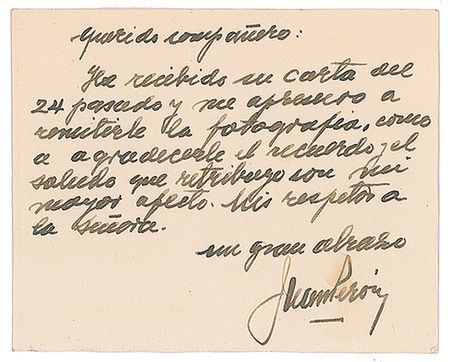 Querido compañero:
He recibido su carta del
24 pasado y me apresuro a
remitirle la fotografia, como
a agradecerle el recuerdo y el
saludo que retribuyo con mi
mayor afecto. Mis respetos a
la señora.
un gran abrazo
Juan Perón